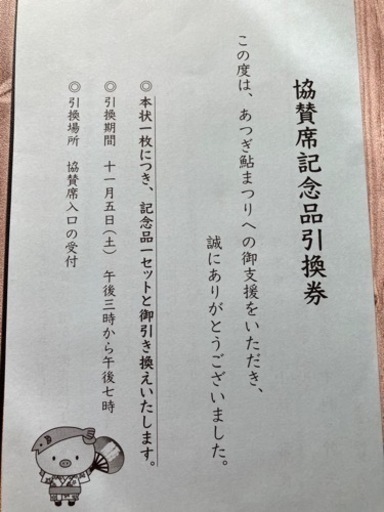 協賛席記念品引換券
この度は、あつぎ鮎まつりへの御支援をいただき、
誠にありがとうございました。
◎本状一枚につき、記念品一セットと御引き換えいたします。
◎引換期間　十一月五日（土）　午後三時から午後七時
◎引換場所　協賛席入口の受付